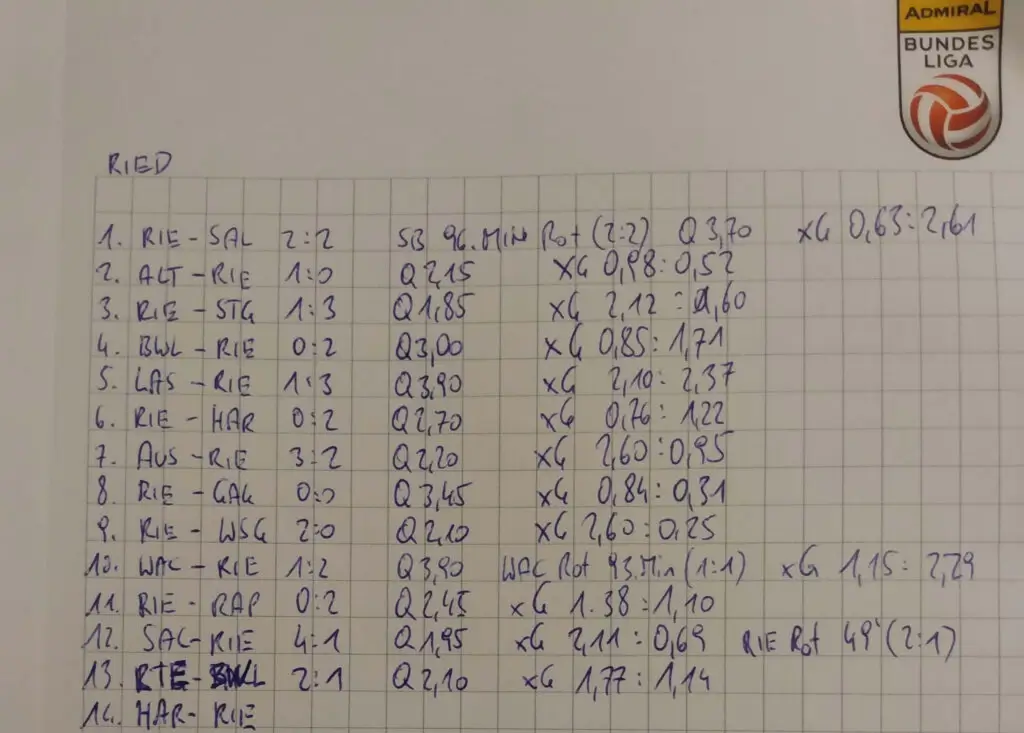 ADMIRAL
BUNDES
LIGA
RIED
1. RIE - SAL 2:2 SB 96. MIN Rot (2:2) Q 3,70 xG 0,63:2,61
2. ALT - RIE 1:0 Q 2,15 xG 0,98:0,52
3. RIE - STG 1:3 Q 1,85 xG 2,12:1,60
4. BWL - RIE 0:2 Q 3,00 xG 0,85:1,71
5. LAS - RIE 1:3 Q 3,90 xG 2,10:2,37
6. RIE - HAR 0:2 Q 2,70 xG 0,76:1,22
7. AUS - RIE 3:2 Q 2,20 xG 2,60:0,95
8. RIE - GAG 0:0 Q 3,45 xG 0,84:0,31
9. RIE - WSG 2:0 Q 2,10 xG 2,60:0,25
10. WAC - RIE 1:2 Q 3,90 WAC Rot 93. Min (1:1) xG 1,15:2,29
11. RIE - RAP 0:2 Q 2,45 xG 1.38:1,10
12. SAL - RIE 4:1 Q 1,95 xG 2,11:0,69 RIE Rot 49' (2:1)
13. RIE - BWL 2:1 Q 2,10 xG 1,77:1,14
14. HAR - RIE